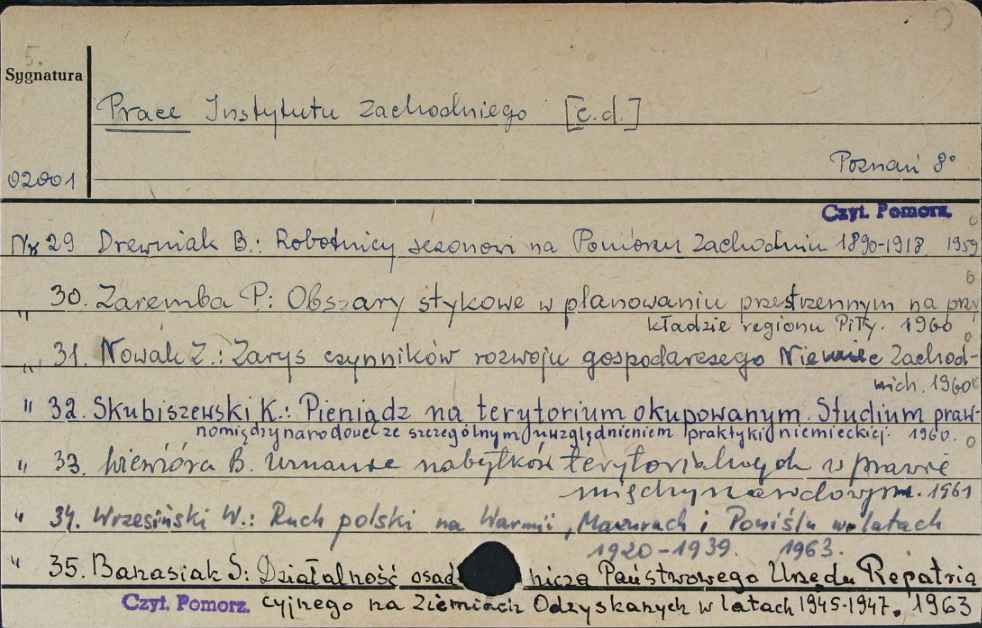 5.
Sygnatura
Prace Instytutu Zachodniego [c.d.]
02001
Poznań 8°
Czyt. Pomorz.
Nr 29 Drewniak B.: Robotnicy sezonowi na Pomorzu Zachodnim 1890-1918. 1959
" 30. Zaremba P: Obszary stykowe w planowaniu przestrzennym na przy
kładzie regionu Piły. 1960
" 31. Nowak Z.: Zarys czynników rozwoju gospodarczego Niemiec Zachod-
nich. 1960
" 32. Skubiszewski K.: Pieniądz na terytorium okupowanym. Studium praw-
nomiędzynarodowe ze szczególnym uwzględnieniem praktyki niemieckiej. 1960.
" 33. Wiewióra B. Uznanie nabytków terytorialnych w prawie
międzynarodowym. 1961
" 34. Wrzesiński W.: Ruch polski na Warmii, Mazurach i Powiślu w latach
1920-1939. 1963.
" 35. Banasiak S: Działalność osad nicza Państwowego Urzędu Repatria
Czyt. Pomorz. cyjnego na Ziemiach Odzyskanych w latach 1945-1947. 1963